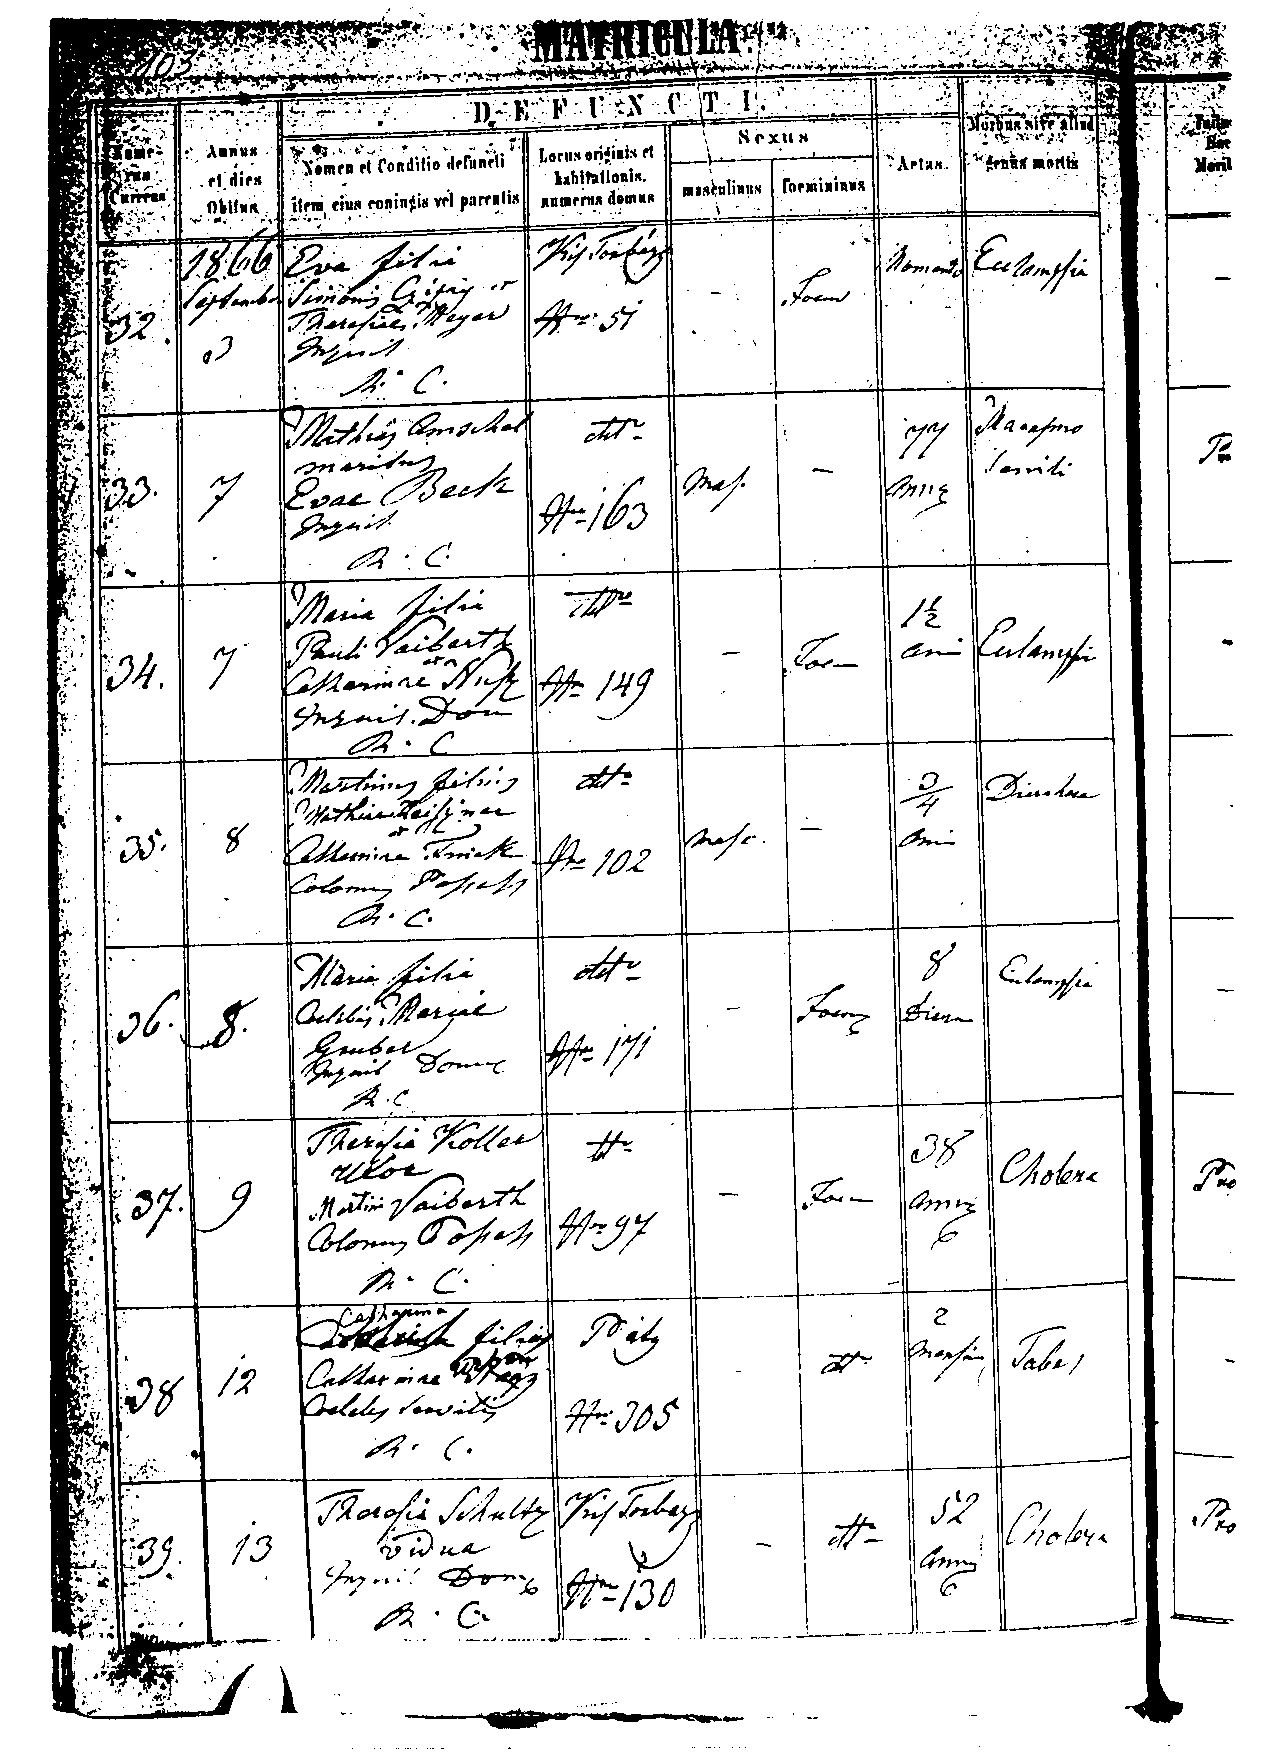 MATRICULA
103
DEFUNCTI.
Numerus Currens
Annus et dies Obitus
Nomen et Conditio defuncti item eius coniugis vel parentis
Locus originis et habitationis, numerus domus
Sexus
masculinus
foemininus
Aetas.
Morbus sive aliud genus mortis
32.
1866
September
3
Eva filia
Simonis
Theresiae Mayer
Inquil
R. C.
Kis Torbágy
Nro 51
-
Foem
Momento
Eclampsia
-
33.
7
Mathias Amschel
maritus
Evae Beck
Inquil.
R. C.
dtto
Nro 163
Mas.
-
77
Annis
Marasmo
senili
34.
7
Maria filia
Pauli Vaibarth
et
Catharinae
Inquil. Dom
R. C
dtto
Nro 149
-
Foem
1 1/2
ani
Eclampsia
-
35.
8
Martinus filius
Mathiae
et
Catharinae
Colonus
R. C.
dtto
Nro 102
Masc.
-
3/4
Ani
Diarrhea
36.
8.
Maria filia
Coelebis Mariae
Gruber
Inquil Domus
R. C
dtto
Nro 171
-
Foem
8
Dierum
Eclampsia
-
37.
9
Theresia Koller
Uxor
Martini Vaibarth
Colonus
R. C.
dtto
Nro 97
-
Foem
38
Annis
6
Cholera
Pro
38
12
Catharina
filia
Catharinae
Coelebs servilis
R. C.
Páty
Nro 305
-
dtto
2
Mensium
Tabes
-
39.
13
Theresia Schultz
Vidua
Inquil Domus
R. C.
Kis Torbágy
Nro 130
-
dtto
52
Annis
6
Cholera
Pro